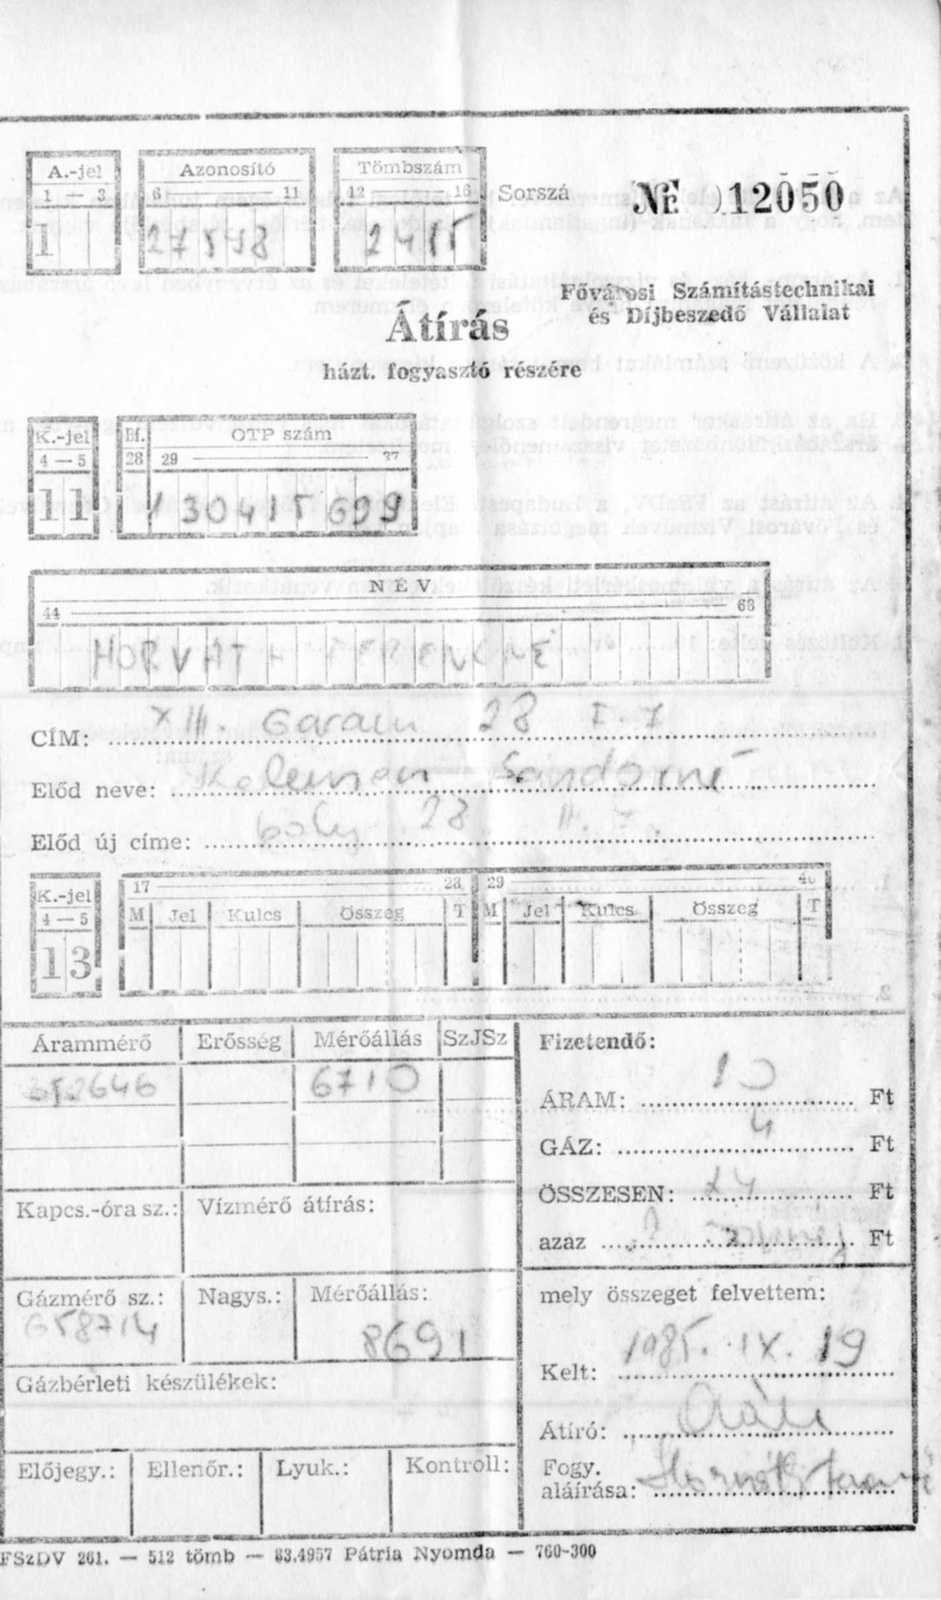 A.-jel Azonosító Tömbszám
1 — 3 6 — 11 12 — 16 Sorszá № 012050
1 27548 2415
Fővárosi Számítástechnikai
és Díjbeszedő Vállalat
Átírás
házt. fogyasztó részére
K.-jel Bf. OTP szám
4 — 5 28 29 — 37
11 130415699
NÉV
44 — 68
HORVÁTH FERENCNÉ
CÍM: XIII. Garam 28 I. 7
Előd neve: Kelemen Sándorné
Előd új címe: 28 II. 7.
K.-jel 17 — 28 29 — 40
4 — 5 M Jel Kulcs Összeg T M Jel Kulcs Összeg T
13
Árammérő Erősség Mérőállás SzJSz
6710
Kapcs.-óra sz.: Vízmérő átírás:
Gázmérő sz.: Nagys.: Mérőállás:
658714 8691
Gázbérleti készülékek:
Előjegy.: Ellenőr.: Lyuk.: Kontroll:
Fizetendő:
ÁRAM: 10 Ft
GÁZ: 4 Ft
ÖSSZESEN: 24 Ft
azaz Ft
mely összeget felvettem:
Kelt: 1985. IX. 19
Átíró:
Fogy.
aláírása: Horváth Ferencné
FSzDV 261. — 512 tömb — 83.4957 Pátria Nyomda — 760-300